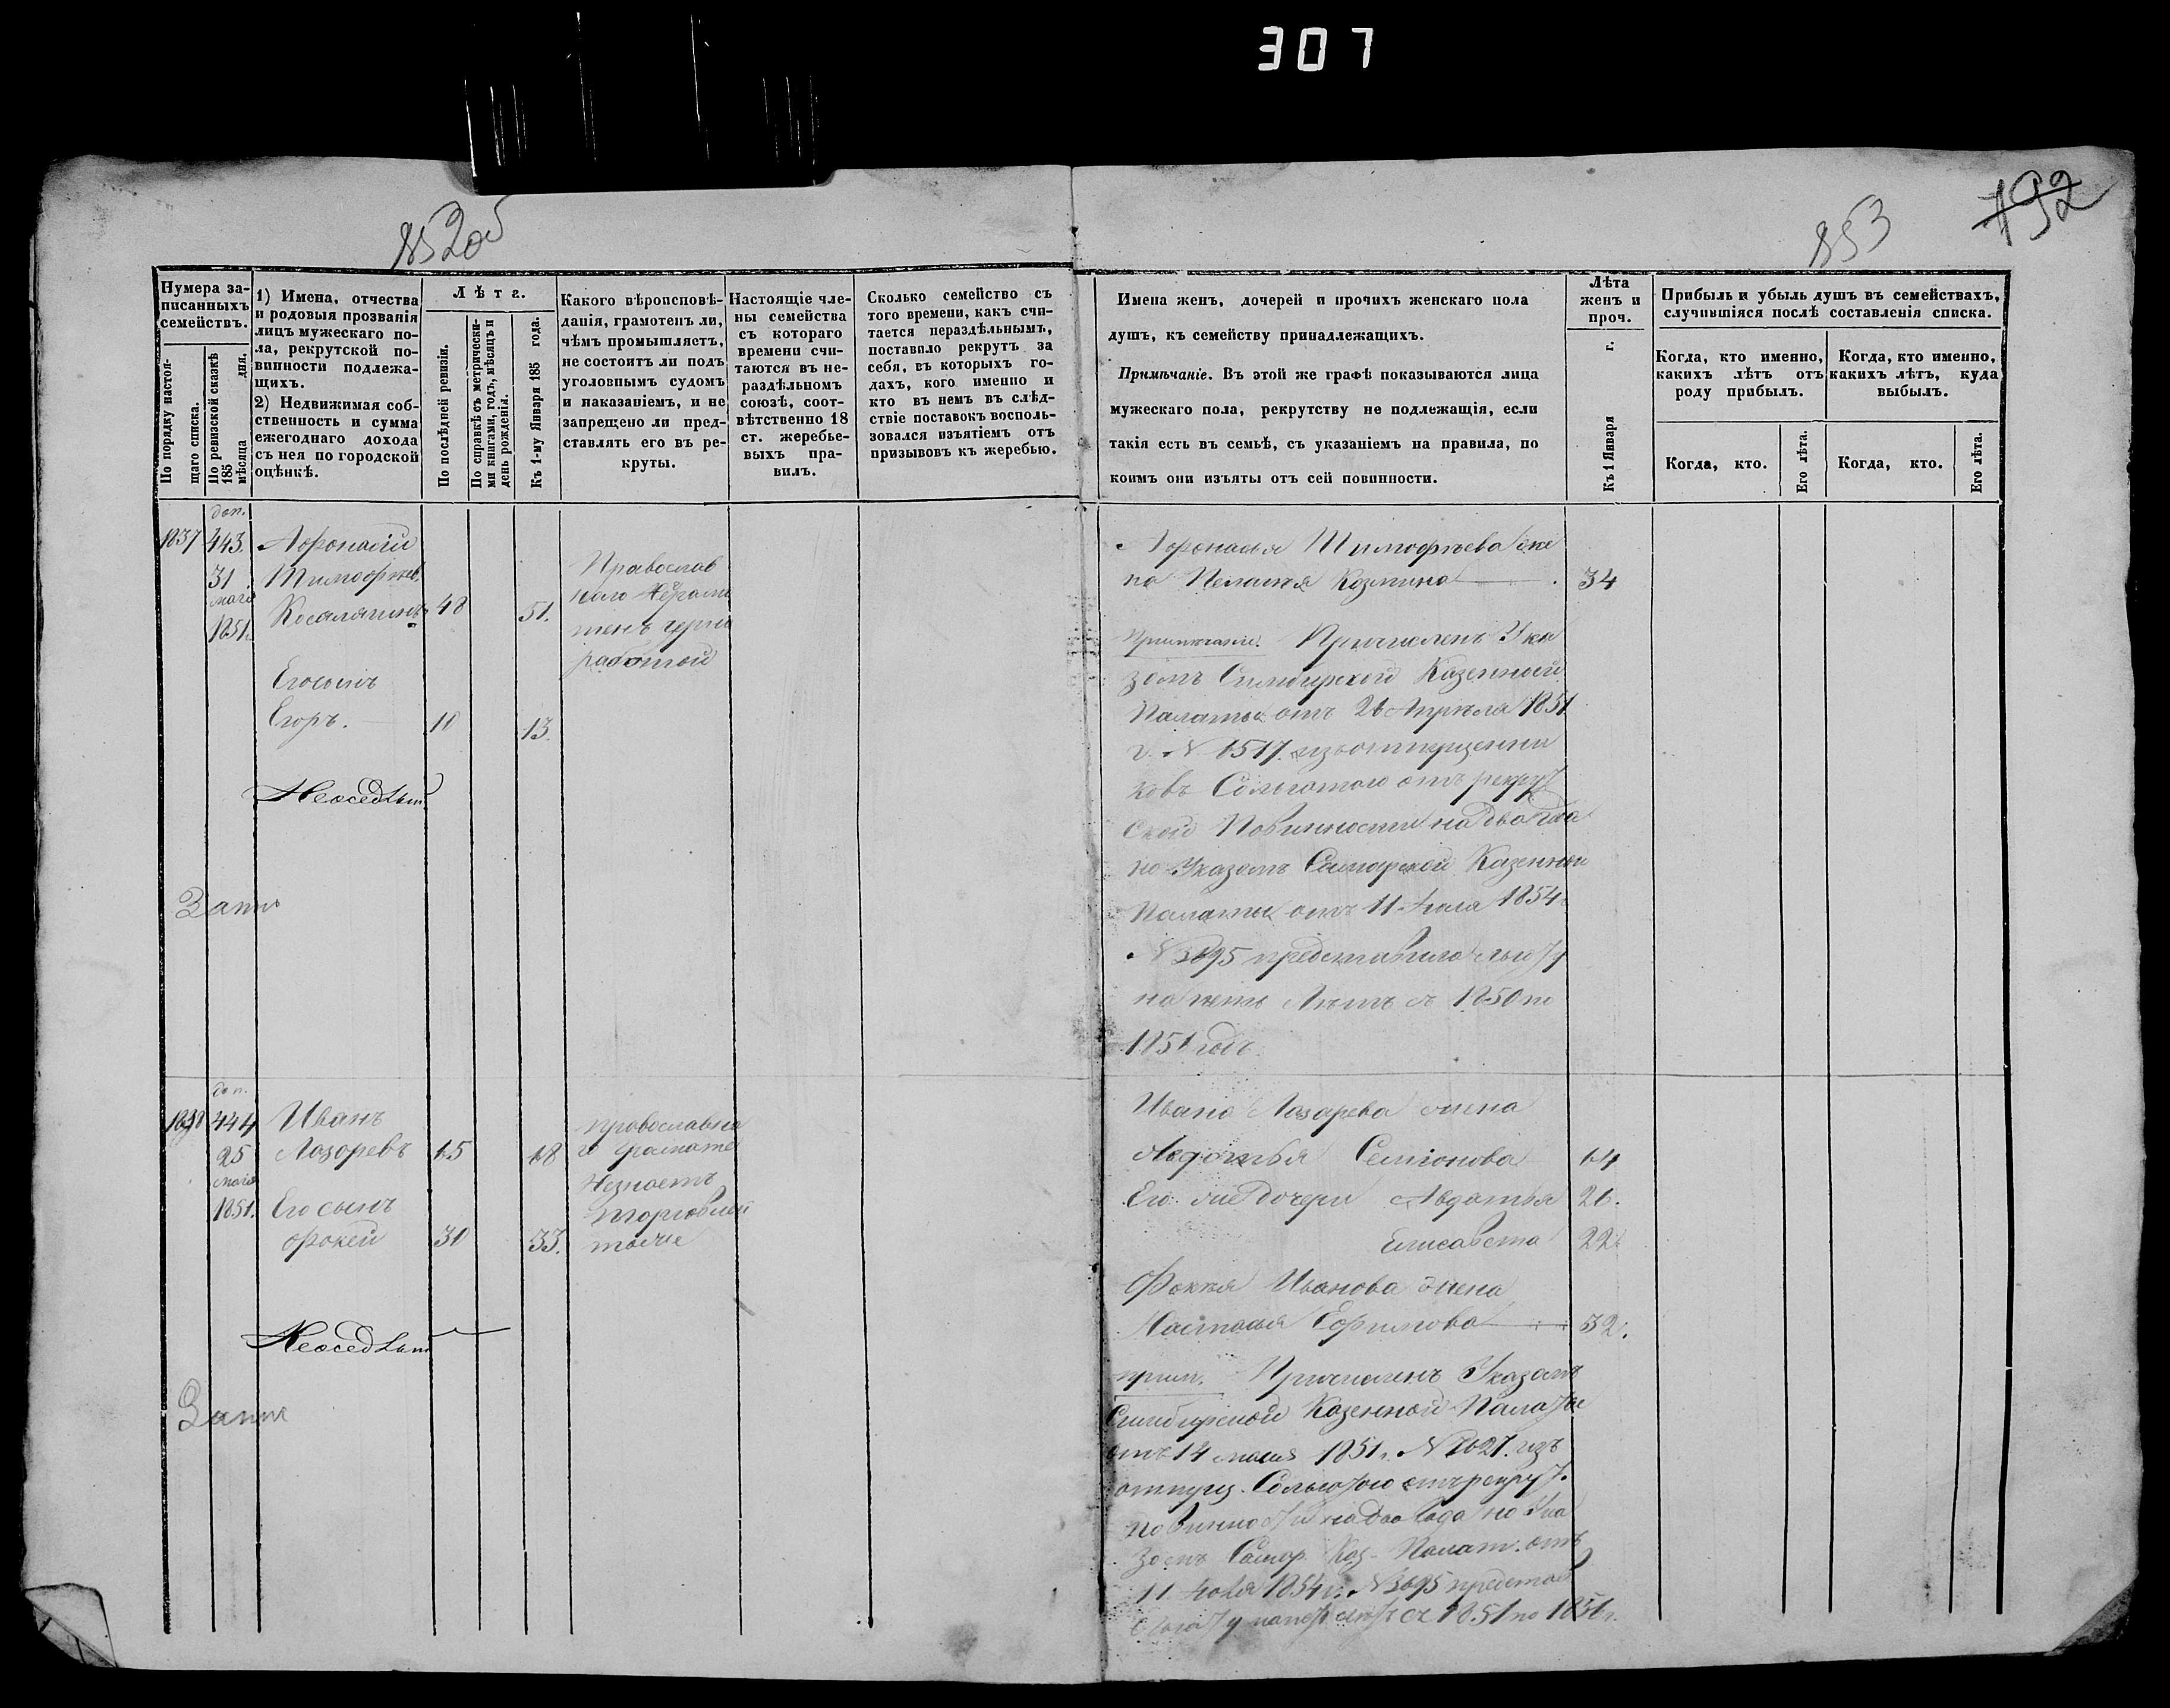 307
852 об
853
192
Нумера за-
писанныхъ
семействъ.
По порядку настоя-
щаго списка.
По ревизской сказкѣ
185
мѣсяца дня.
1) Имена, отчества
и родовыя прозванія
лицъ мужескаго по-
ла, рекрутской по-
винности подлежа-
щихъ.
2) Недвижимая соб-
ственность и сумма
ежегоднаго дохода
съ нея по городской
оцѣнкѣ.
Лѣта.
По послѣдней ревизіи.
По справкѣ съ метрически-
ми книгами, годъ, мѣсяцъ и
день рожденія.
Къ 1-му Января 185 года.
Какого вѣроисповѣ-
данія, грамотенъ ли,
чѣмъ промышляетъ,
не состоитъ ли подъ
уголовнымъ судомъ
и наказаніемъ, и не
запрещено ли пред-
ставлять его въ ре-
круты.
Настоящіе чле-
ны семейства
съ котораго
времени счи-
таются въ не-
раздѣльномъ
союзѣ, соот-
вѣтственно 18
ст. жеребье-
выхъ пра-
вилъ.
Сколько семейство съ
того времени, какъ счи-
тается нераздѣльнымъ,
поставило рекрутъ за
себя, въ которыхъ го-
дахъ, кого именно и
кто въ немъ въ слѣд-
ствіе поставокъ восполь-
зовался изъятіемъ отъ
призывовъ къ жеребью.
Имена женъ, дочерей и прочихъ женскаго пола
душъ, къ семейству принадлежащихъ.
Примѣчаніе. Въ этой же графѣ показываются лица
мужескаго пола, рекрутству не подлежащія, если
такія есть въ семьѣ, съ указаніемъ на правила, по
коимъ они изъяты отъ сей повинности.
Лѣта
женъ и
проч.
Къ 1 Января г.
Прибыль и убыль душъ въ семействахъ,
случившіяся послѣ составленія списка.
Когда, кто именно,
какихъ лѣтъ отъ
роду прибылъ.
Когда, кто именно,
какихъ лѣтъ, куда
выбылъ.
Когда, кто.
Его лѣта.
Когда, кто.
Его лѣта.
доп.
1837 443. Афонасій
31 Тимофѣев.
мая
1851. 48 51.
Православ
наго
черно
работой
Его сынъ
Егоръ. 10 13.
Неоседлый
Запис
Афонасья Тимофѣева же
на Пелагѣя Козмина 34
Примѣчаніе. Причисленъ Ука
зомъ Симбирской Казенной
Палаты отъ 26 Апрѣля 1851
г. № 1517. изъ отпущенни
ковъ Сольготою отъ рекрут
ской Повинности на два года
но Указомъ Самарской Казенной
Палаты отъ 11 Июля 1854
№ 3695 представлено льготу
на пять Лѣтъ съ 1850 по
1851 годъ
доп.
1838 444 Иванъ
25 Лазоревъ 65 68
мая
1851. Его сынъ
Фокей 30 33.
православна
го грамоте
Незнаетъ
торговлей
Неоседлый
Запис
Ивана Лазарева жена
Авдотья Семіонова 64
Его же дочери Авдотья 26.
Елисавета 22
Фокѣя Иванова жена
Настасья Ефимова 32.
прим. Причисленъ Указомъ
Симбирской Казенной Палаты
отъ 14 мая 1851 г. № 2027. изъ
отпущ. Сольготою отъ рекрут.
повинности на два года но Ука
зомъ Самар. Каз. Палат. отъ
11 Июля 1854 г. № 3695 предстов
льготу на пять лѣтъ съ 1851 по 1856 г.